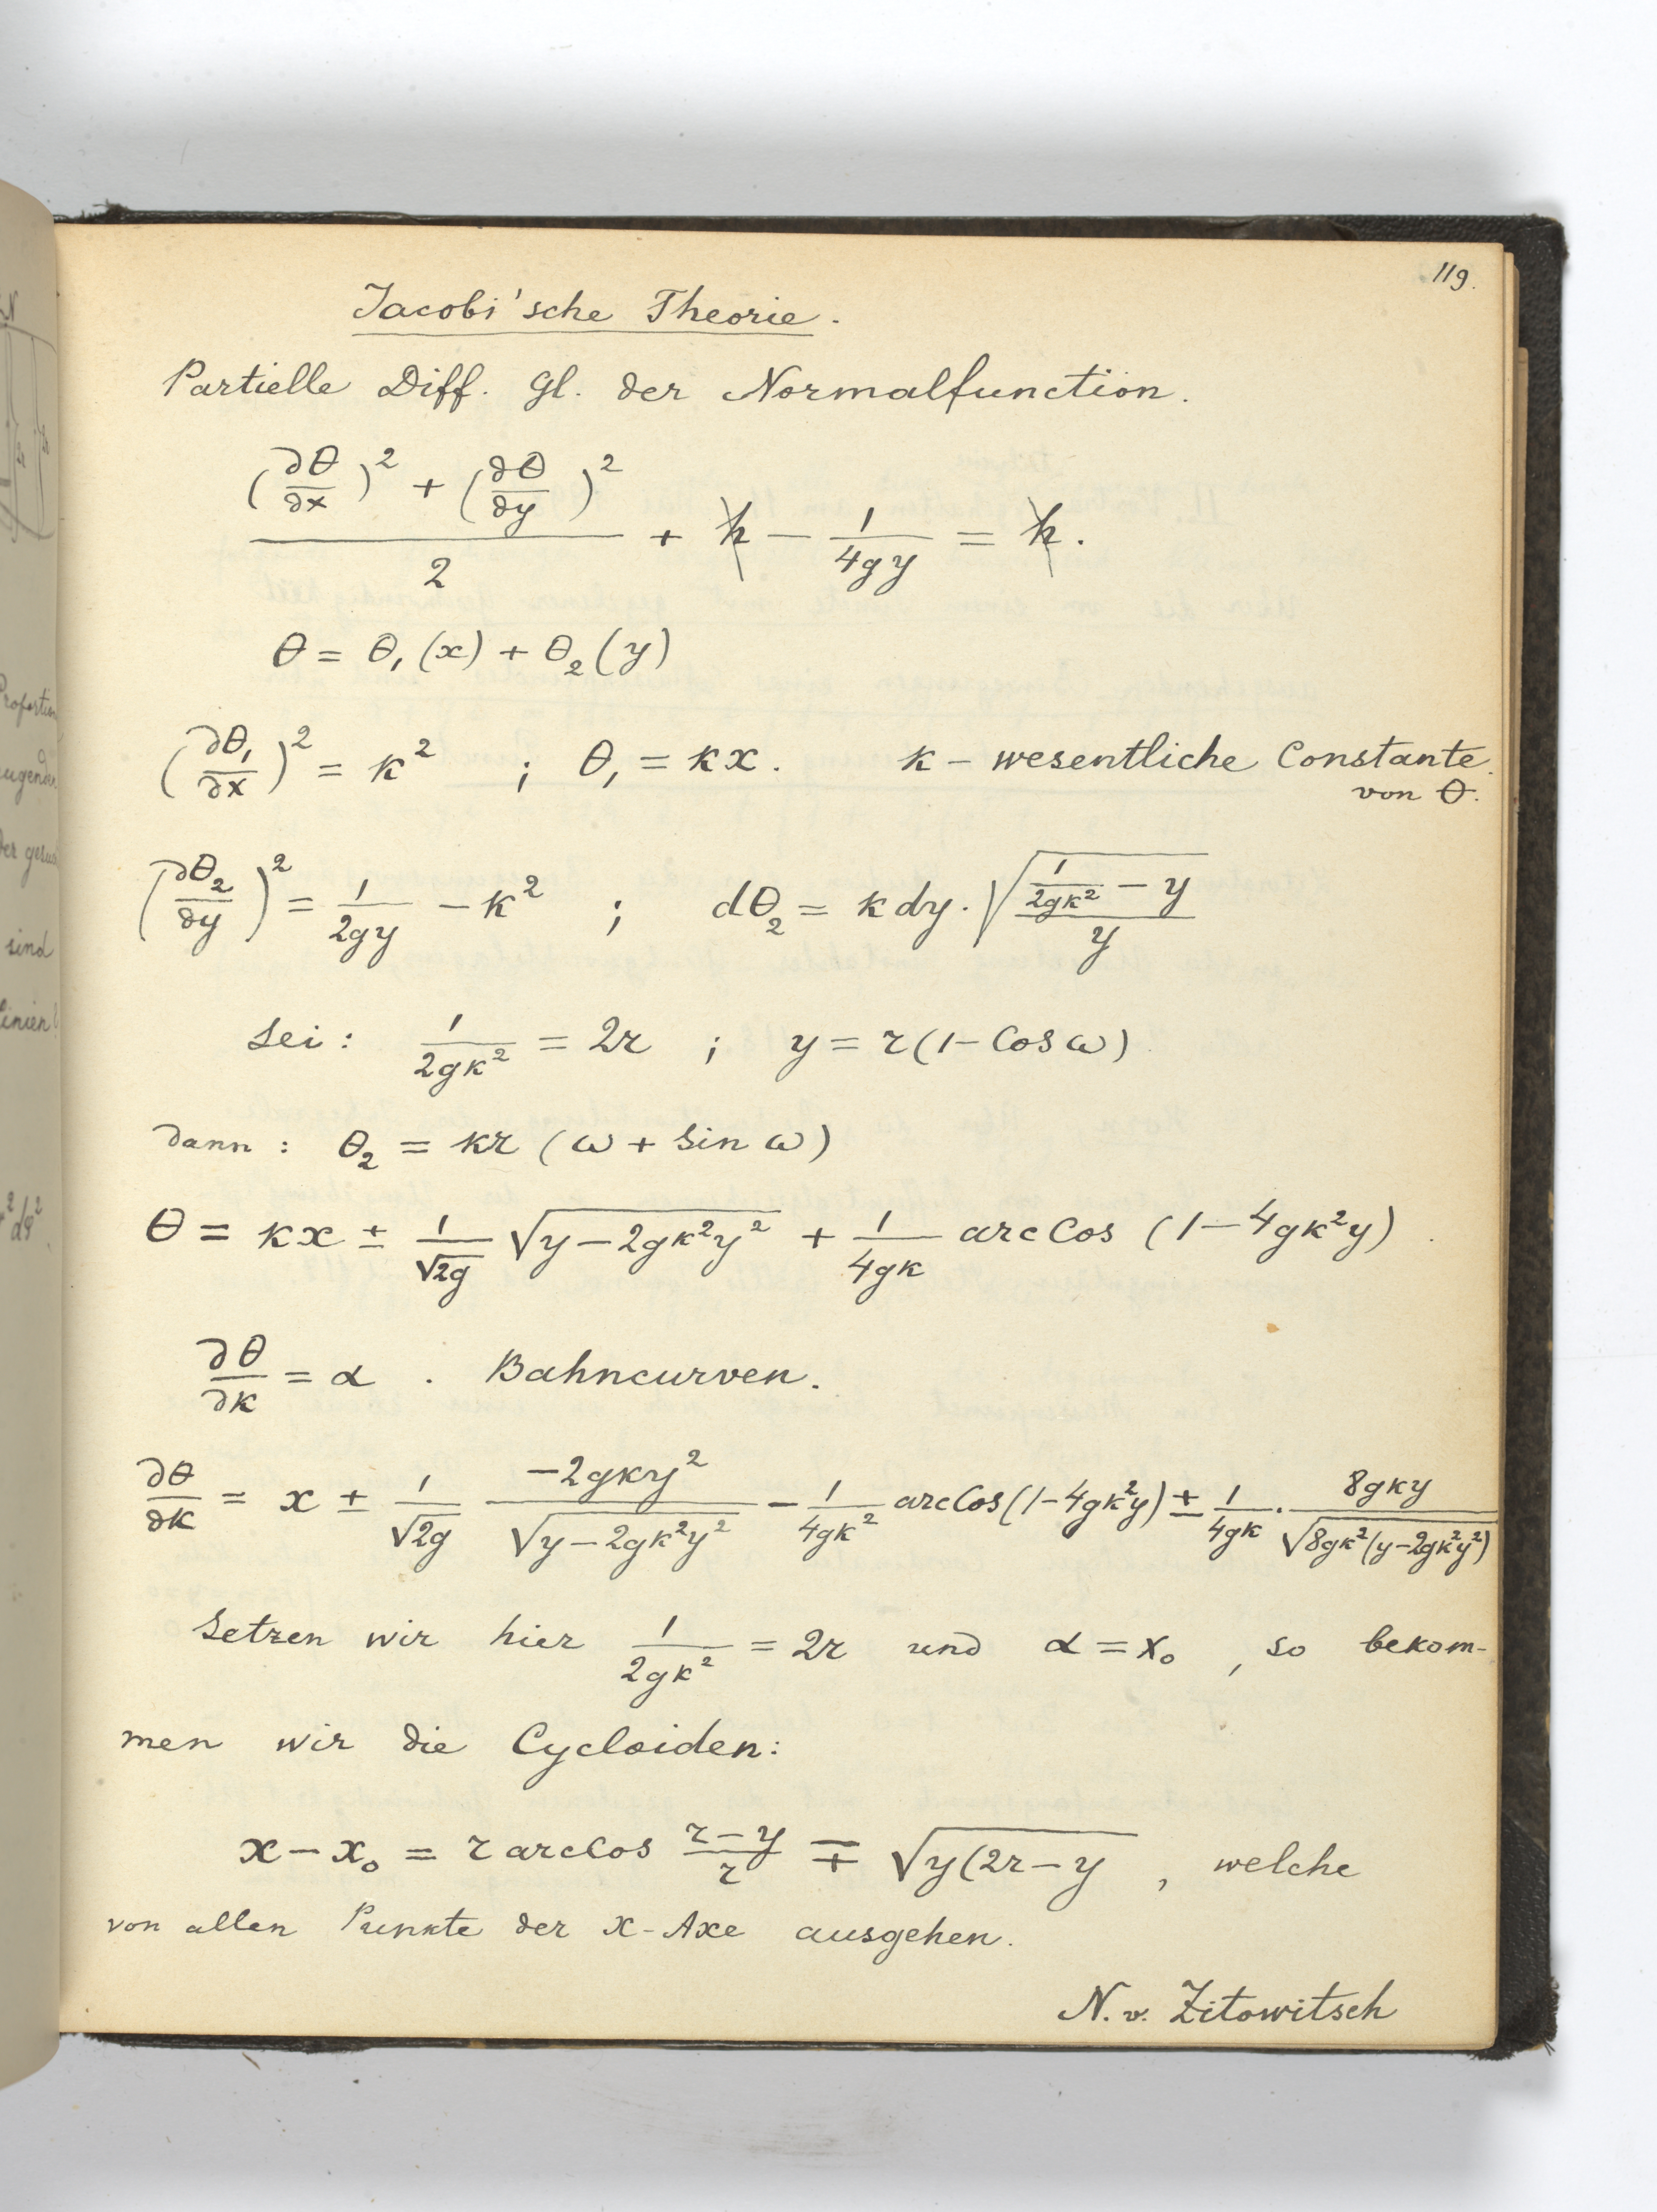 119.
Jacobi'sche Theorie.
Partielle Diff. Gl. der Normalfunction.
\frac{(\frac{∂θ}{∂x})^2 + (\frac{∂θ}{∂y})^2}{2} + h − \frac{1}{4gy} = h.
θ = θ_1(x) + θ_2(y)
(\frac{∂θ_1}{∂x})^2 = k^2 ; θ_1 = kx. k – wesentliche Constante
von θ.
(\frac{∂θ_2}{∂y})^2 = \frac{1}{2gy} − k^2 ; dθ_2 = k dy · \sqrt{\frac{\frac{1}{2gk^2} − y}{y}}
Sei : \frac{1}{2gk^2} = 2r ; y = r(1 − Cos ω)
dann : θ_2 = kr (ω + Sin ω)
θ = kx ± \frac{1}{\sqrt{2g}} \sqrt{y − 2gk^2y^2} + \frac{1}{4gk} arcCos (1 − 4gk^2y).
\frac{∂θ}{∂k} = α . Bahncurven.
\frac{∂θ}{∂k} = x ± \frac{1}{\sqrt{2g}} \frac{−2gky^2}{\sqrt{y − 2gk^2y^2}} − \frac{1}{4gk^2} arcCos(1 − 4gk^2y) ± \frac{1}{4gk} · \frac{8gky}{\sqrt{8gk^2(y − 2gk^2y^2)}}
Setzen wir hier \frac{1}{2gk^2} = 2r und α = x_0 , so bekom-
men wir die Cycloiden:
x − x_0 = r arcCos \frac{r − y}{r} ∓ \sqrt{y(2r − y} , welche
von allen Punkte der x-Axe ausgehen.
N. v. Zitowitsch